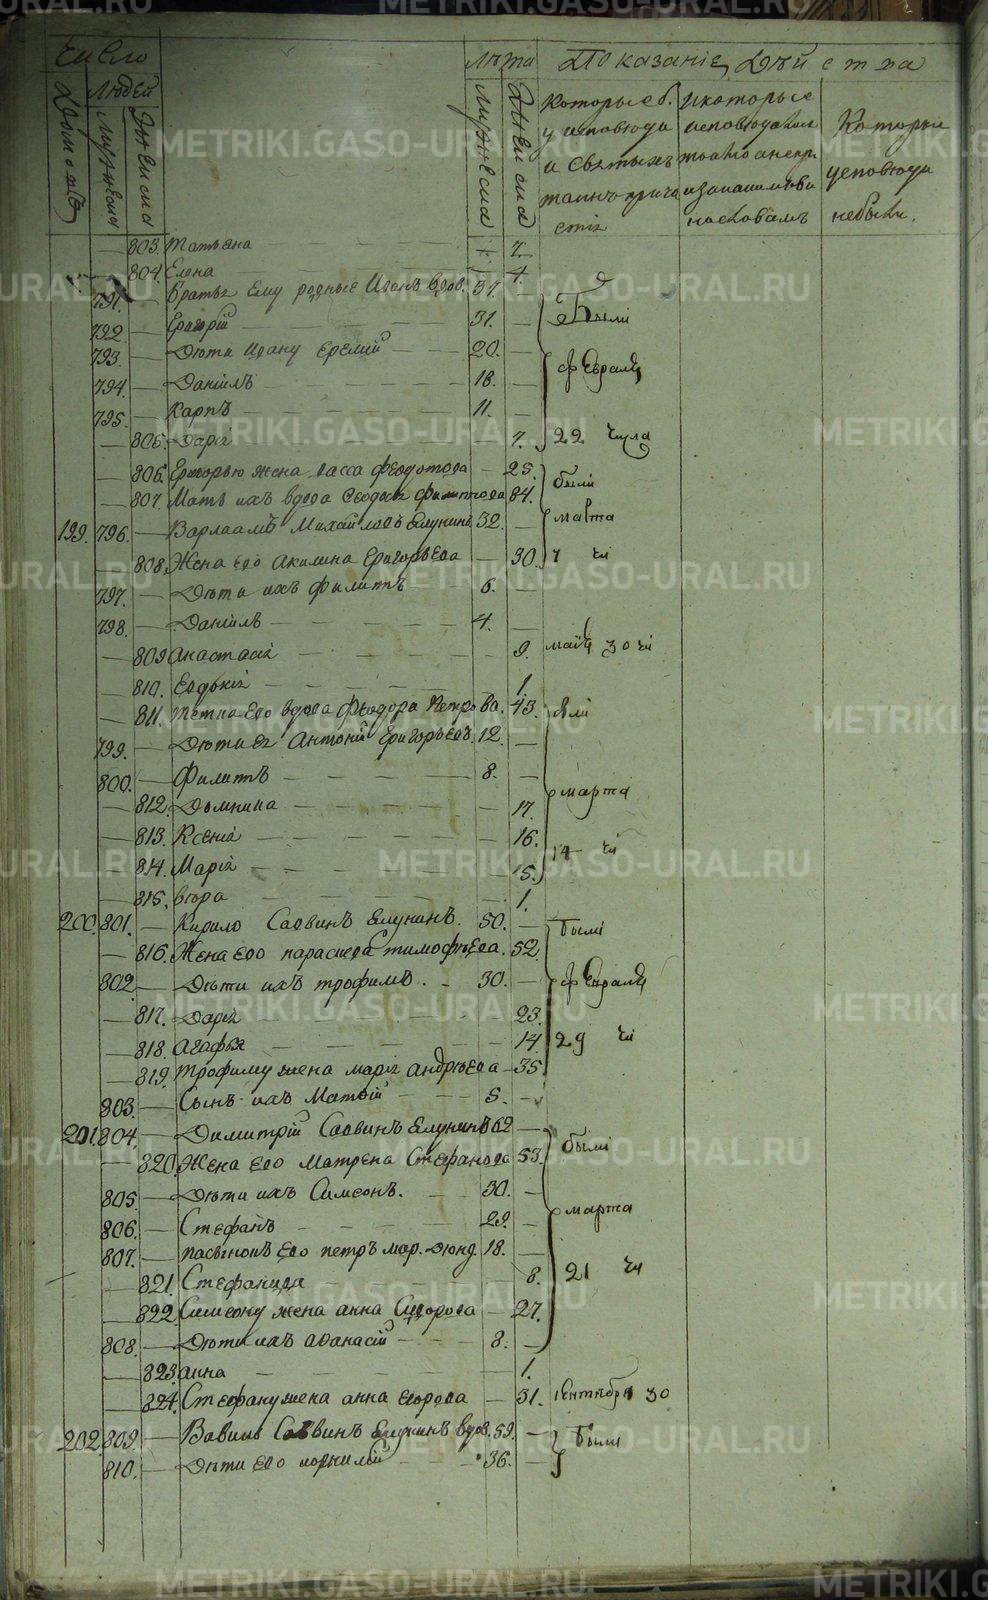 Число Лѣта Показаніе Дѣйства
Дворовъ Людей Мужеска Женска Мужеска Женска
Которые б. Икоторые
у исповѣди исповѣдалис Которыи
и святыхъ тоатко анепри уисповѣди
таинъ прича изакакимъ ви небыли.
стіи насловамъ
— 803. Татьяна — 7.
— 804. Елена — 4.
791. — Братья Ему родные Иванъ вдов. 37. — Были
792 — Григорій — 31. —
793. — Дѣти Ивану Еремій — 20. — февраля
794. — Даніилъ — 18. —
795. — Карпъ — 11. —
— 805. Дарія — 7. 22 числа
— 806. Григорью жена васса Федотова — 25. были
— 807. Мать ихъ вдова Феодосія Филиппова 84.
199. 796. — Варлаамъ Михайловъ Елунинъ 32. — марта
— 808. Жена его Акилина Григорьева — 30. 7 чи
797. — Дѣти ихъ Филипъ — 6. —
798. — Даніилъ — 4. —
— 809 Анастасія — 9. маія 30 чи
— 810. Евдокія — 1.
— 811. Тетка Его вдова Феодора Петрова. 43. были
799. — Дѣти ея Антоній Григорьевъ. 12. —
800. — Филипъ — 8. —
— 812. Домнина — 17. марта
— 813. Ксенія — 16.
— 814. Марія — 15. 14 чи
— 815. вѣра — 1.
200. 801. — Кирило Саввинъ Елунинъ. 50. — были
— 816. Жена его параскева тимофѣева. 52.
802. — Дѣти ихъ трофимъ. 30. — февраля
— 817. Дарія — 23.
— 818. Агафья — 14 29 чи
— 819. Трофиму жена марія андрѣева — 35.
803. — Сынъ ихъ Матѳій — 5. —
201. 804. — Димитрій Саввинъ Елунинъ 62 — были
— 820. Жена его Матрена Стефанова 53.
805. — Дѣти ихъ Симеонъ. — 30. —
806. — Стефанъ — 29. — марта
807. — пасынокъ его петръ мар. 18. —
— 821. Стефанида — 8. 21 чи
— 822. Симеону жена анна Сидорова — 27.
808. — Дѣти ихъ аѳанасій — 8. —
— 823. анна — 1.
— 824. Стефану жена анна егорова — 31. сентября 30
202. 809. — Вавило Саввинъ Елунинъ вдов. 59. — были
810. — Дѣти его корнилій — 36. —
METRIKI.GASO-URAL.RU